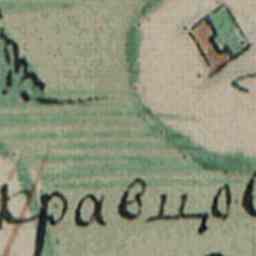 кравцов